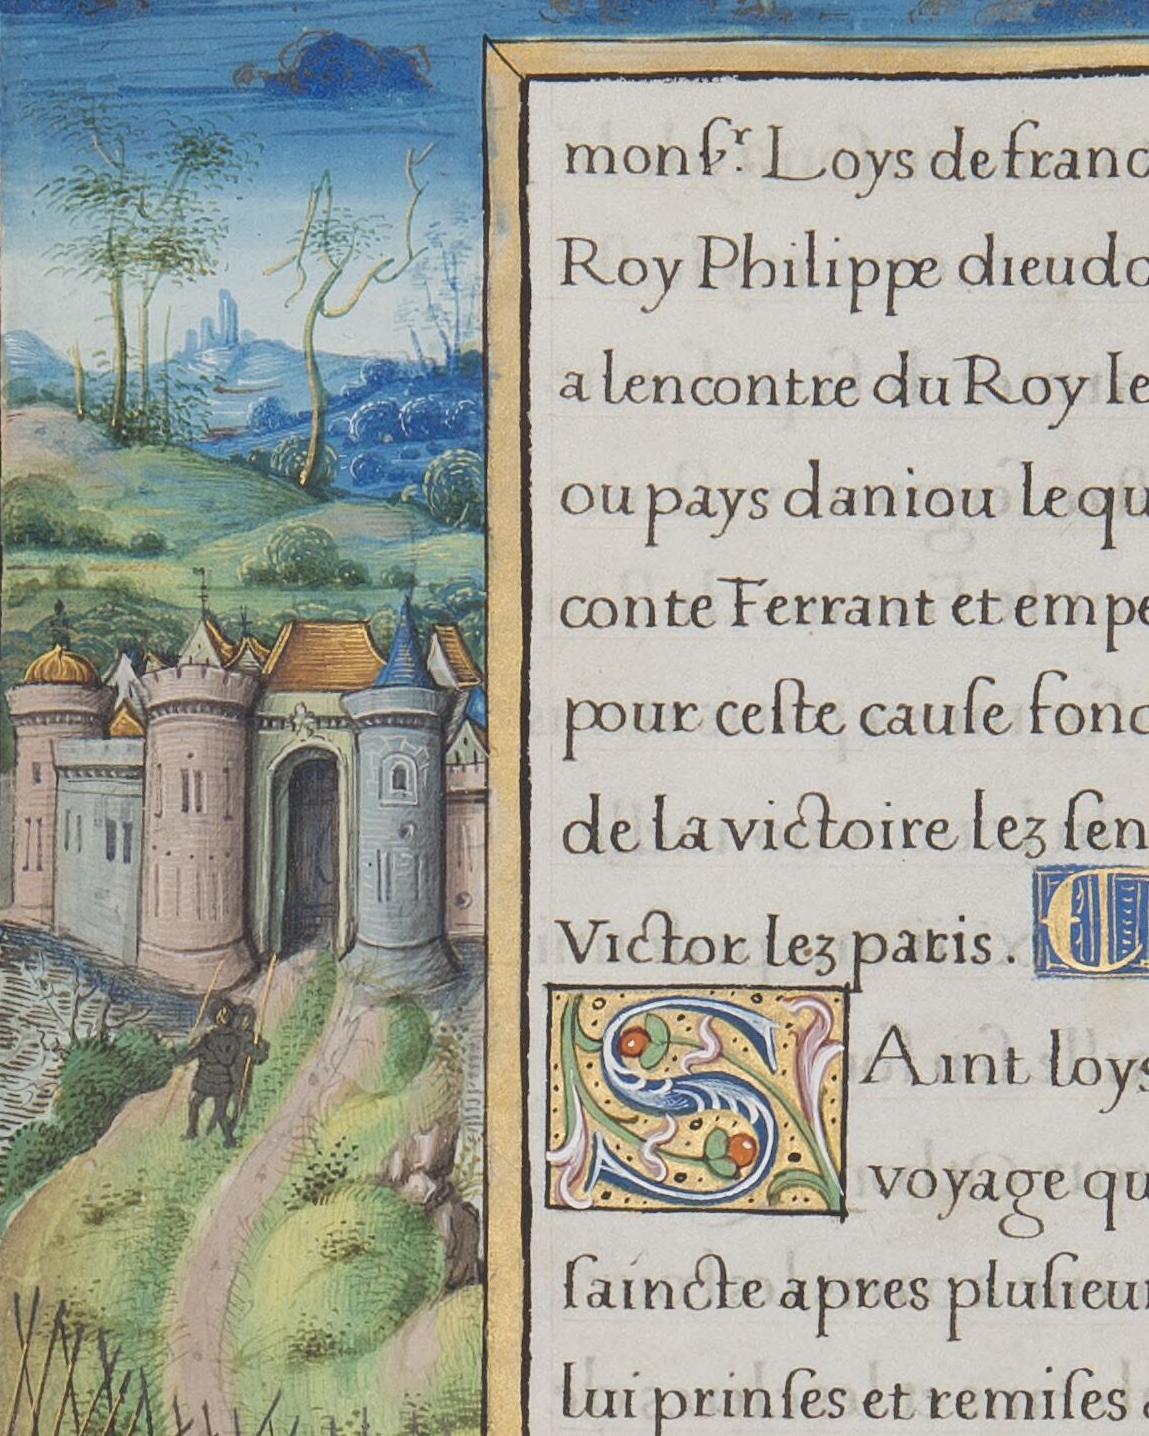 monſr. Loys de franc
Roy Philippe dieudo
a lencontre du Roy le
ou pays daniou le qu
conte Ferrant et empe
pour ceſte cauſe fond
de la victoire lez ſen
Victor lez paris. C
SAint loys
voyage qu
ſaincte apres pluſieur
lui prinſes et remiſes a